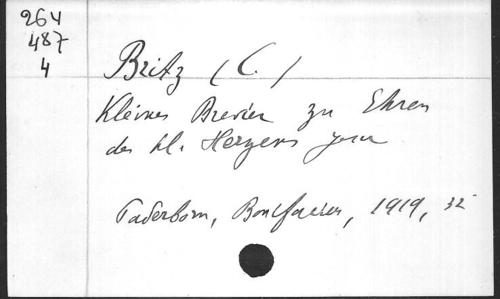 264
487
4
Britz (C.)
Kleines Brevier zu Ehren
des hl. Herzens Jesu
Paderborn, Bonifacius, 1919, 32